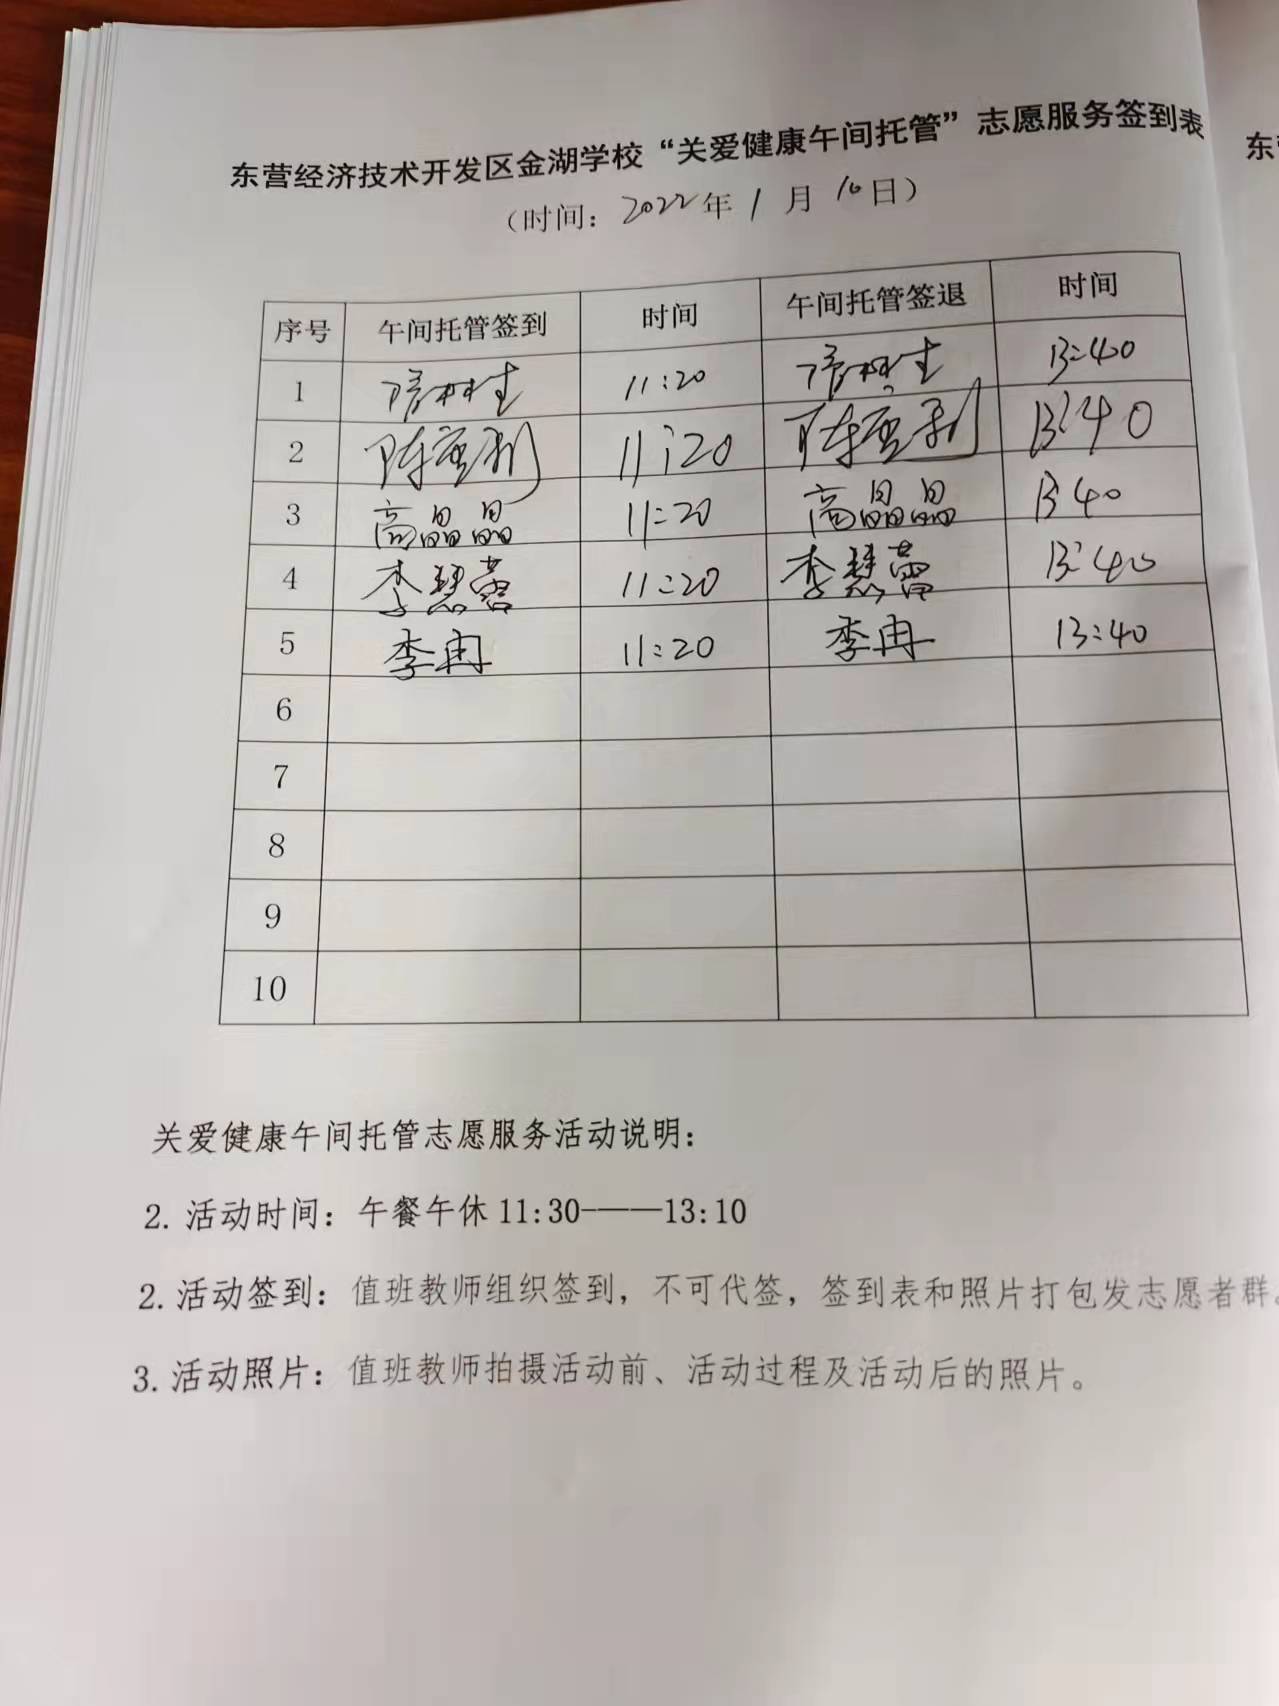 东营经济技术开发区金湖学校“关爱健康午间托管”志愿服务签到表
东
（时间：2022年1月10日）
序号 午间托管签到 时间 午间托管签退 时间
1 11:20 13:40
2 11:20 13:40
3 高晶晶 11:20 高晶晶 13:40
4 李慧蕾 11:20 李慧蕾 13:40
5 季冉 11:20 季冉 13:40
6
7
8
9
10
关爱健康午间托管志愿服务活动说明：
2. 活动时间：午餐午休 11:30-——13:10
2. 活动签到：值班教师组织签到，不可代签，签到表和照片打包发志愿者群。
3. 活动照片：值班教师拍摄活动前、活动过程及活动后的照片。